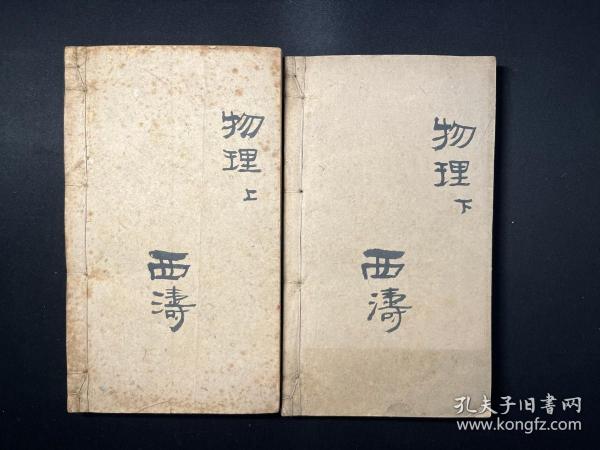 物理
上
西濤
物理
下
西濤
孔夫子旧書网
www.kongfz.com